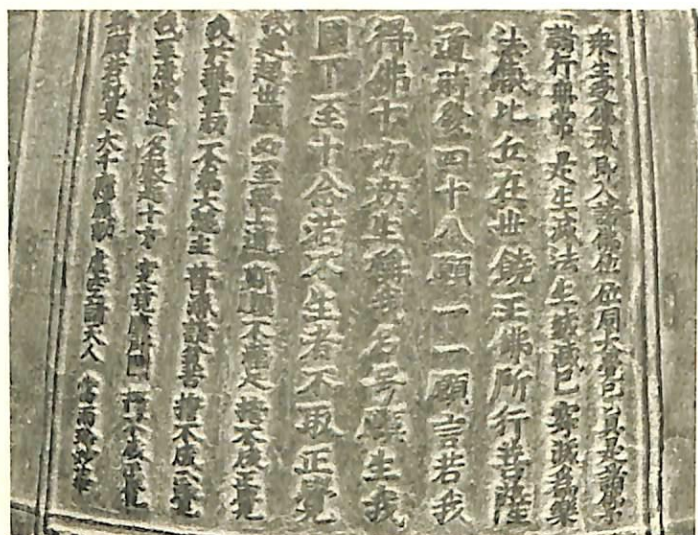 衆生受佛戒即入諸佛位位同大覺已真是諸佛子
諸行無常是生滅法生滅滅已寂滅爲樂
法蔵比丘在世饒王佛所行菩薩
道時發四十八願一一願言若我
得佛十方衆生稱我名号願生我
國下至十念若不生者不取正覺
我建超世願 必至無上道 斯願不滿足 誓不成正覺
我於無量劫 不爲大施主 普濟諸貧苦 誓不成正覺
我至成佛道 名聲超十方 究竟靡所聞 誓不成正覺
斯願若剋果 大千應感動 虚空諸天人 當雨珍妙華